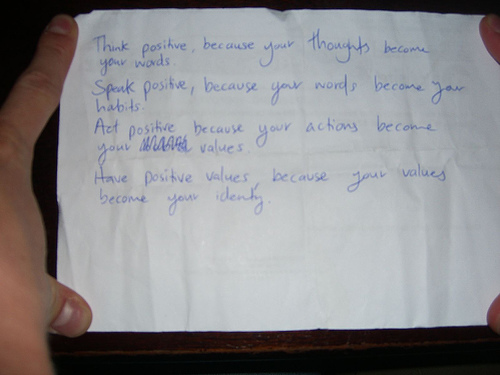 Think positive, because your thoughts become
your words.
Speak positive, because your words become your
habits.
Act positive because your actions become
your values.
Have positive values, because your values
become your identy.